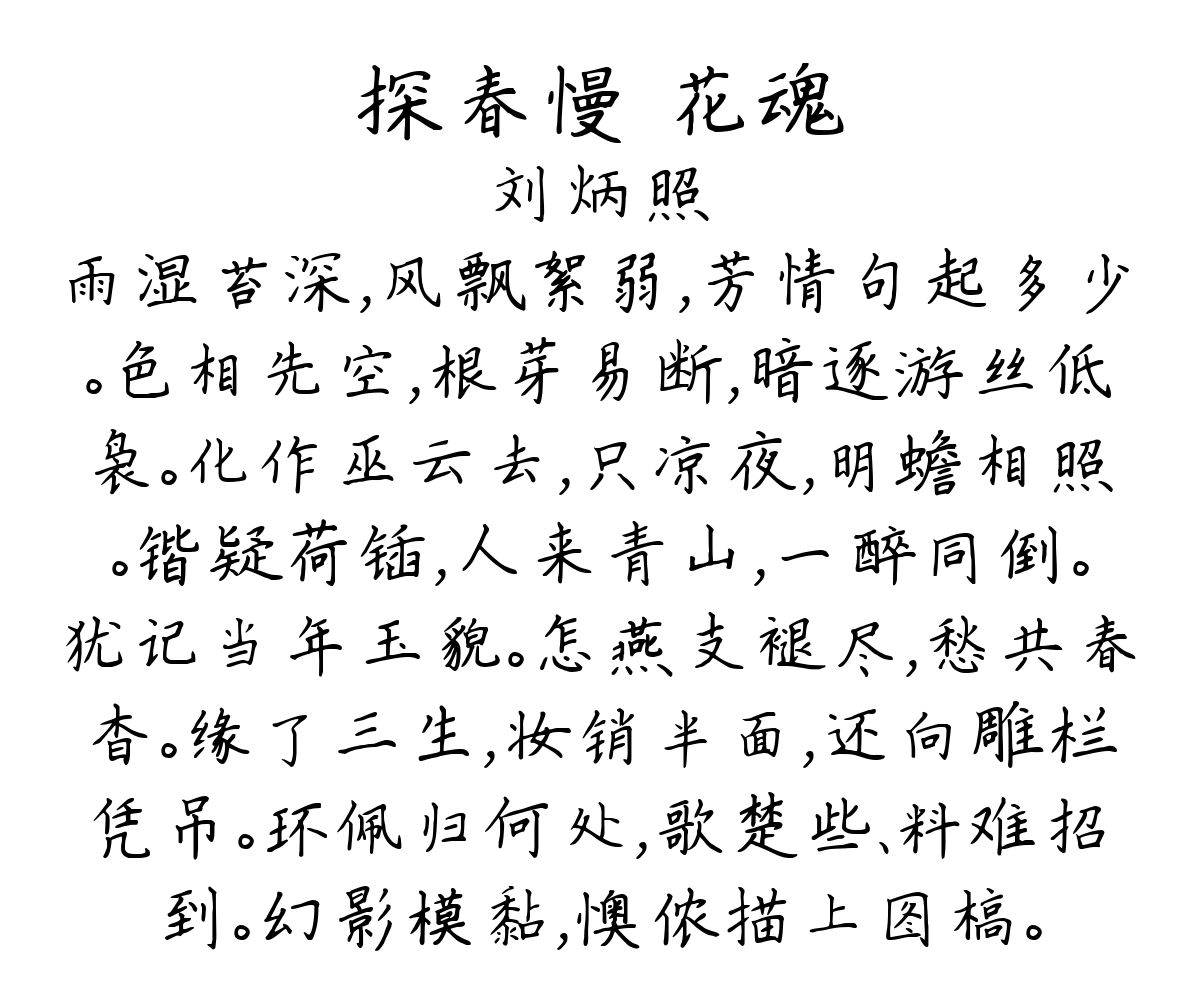 探春慢 花魂
刘炳照
雨湿苔深,风飘絮弱,芳情句起多少
。色相先空,根芽易断,暗逐游丝低
袅。化作巫云去,只凉夜,明蟾相照
。锴疑荷锸,人来青山,一醉同倒。
犹记当年玉貌。怎燕支褪尽,愁共春
杳。缘了三生,妆销半面,还向雕栏
凭吊。环佩归何处,歌楚些、料难招
到。幻影模黏,懊侬描上图槁。